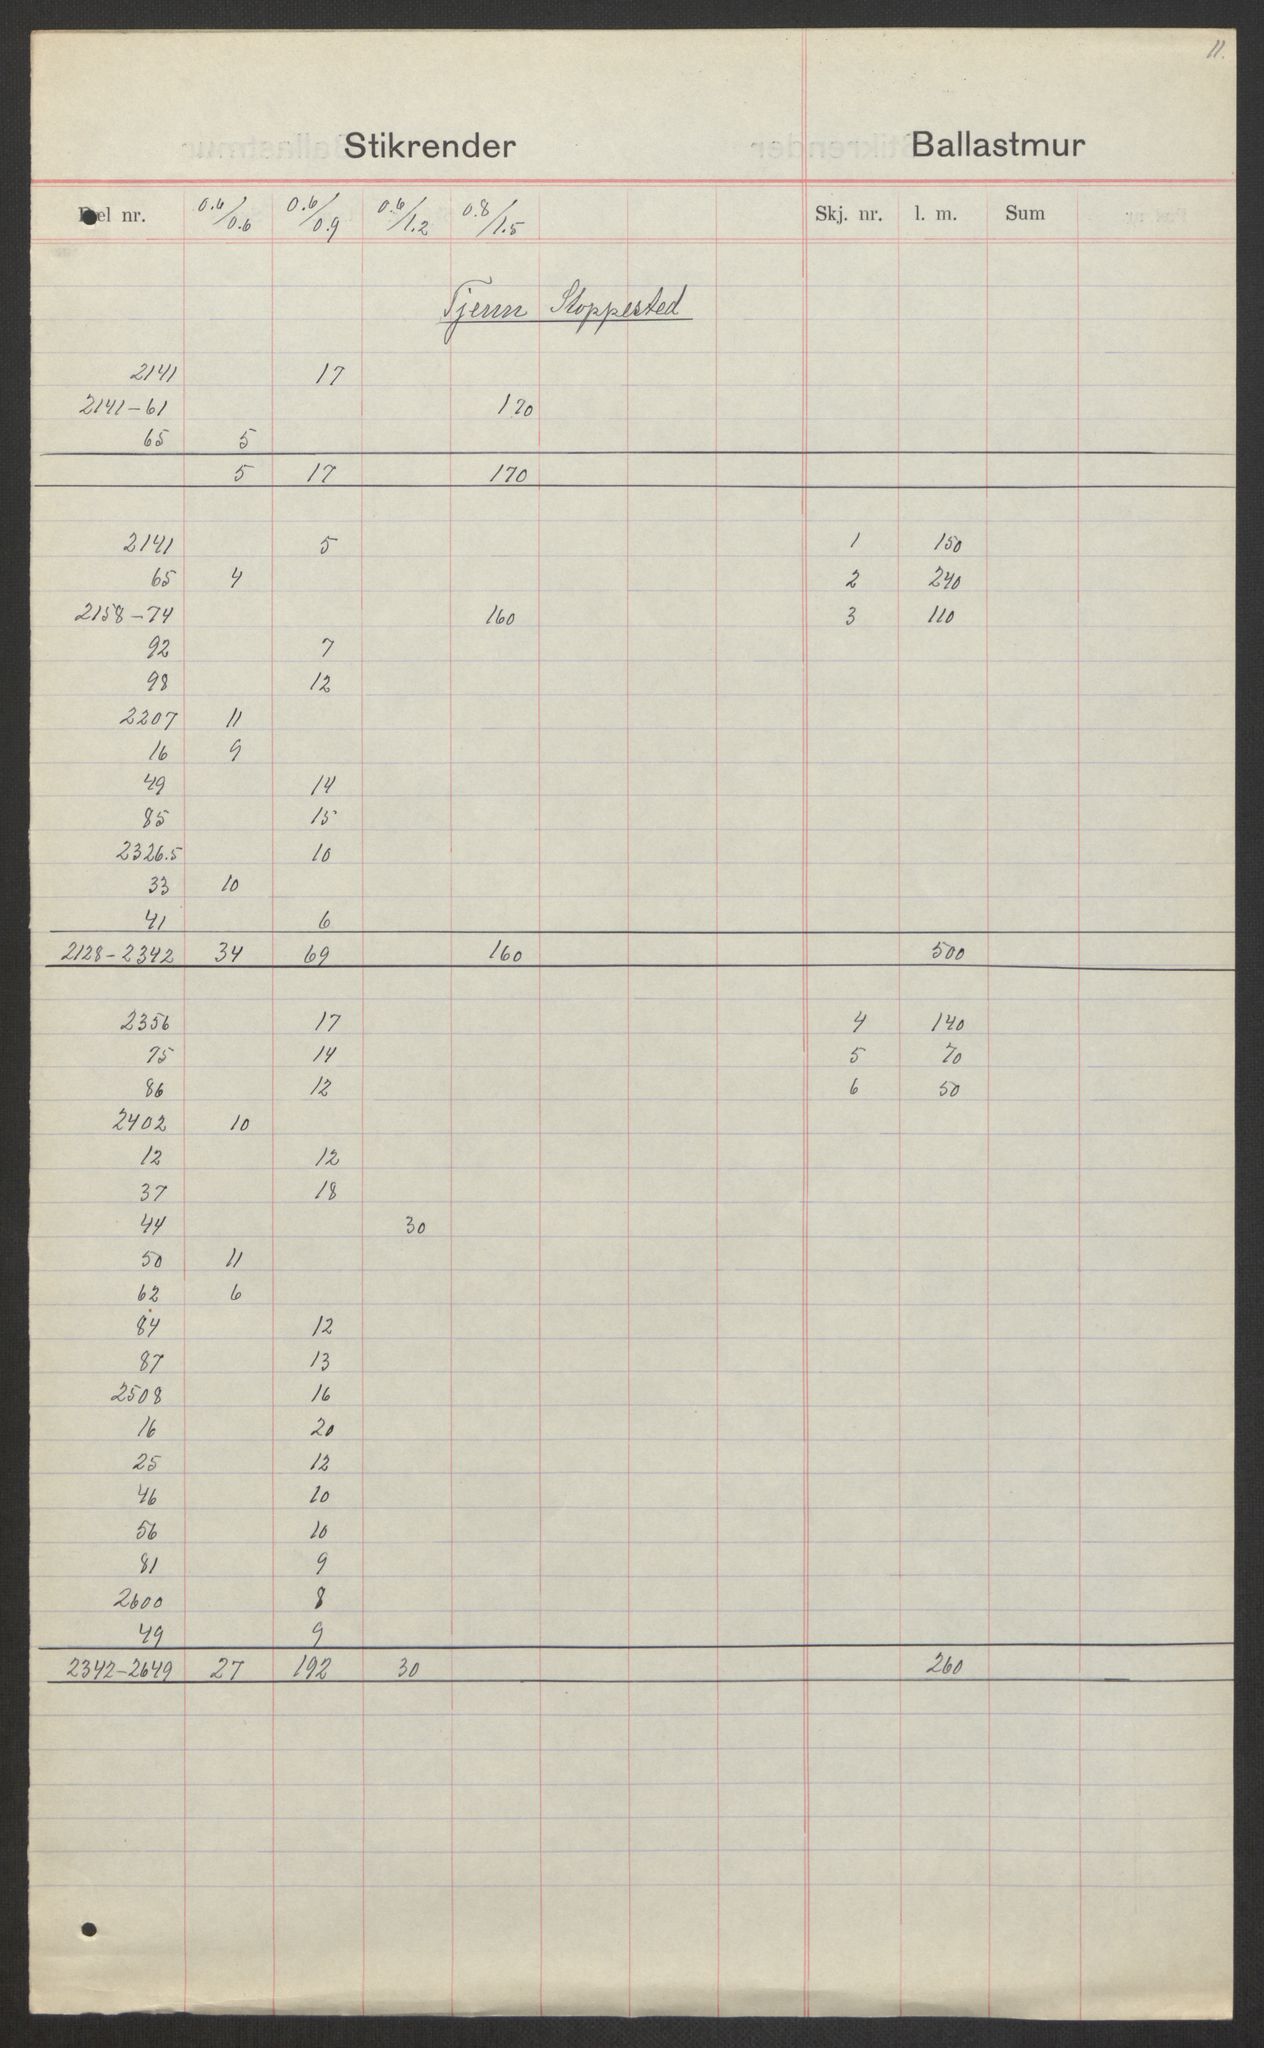 11.
Stikrender Ballastmur
Pel nr. 0.6/0.6 0.6/0.9 0.6/1.2 0.8/1.5 Skj. nr. l. m. Sum
Tjenn Stoppested
2141 17
2141-61 170
65 5
5 17 170
2141 5 1 150
65 4 2 240
2158-74 160 3 110
92 7
98 12
2207 11
16 9
49 14
85 15
2326.5 10
33 10
41 6
2128-2342 34 69 160 500
2356 17 4 140
75 14 5 70
86 12 6 50
2402 10
12 12
37 18
44 30
50 11
62 6
84 12
87 13
2508 16
16 20
25 12
46 10
56 10
81 9
2600 8
49 9
2342-2649 27 192 30 260